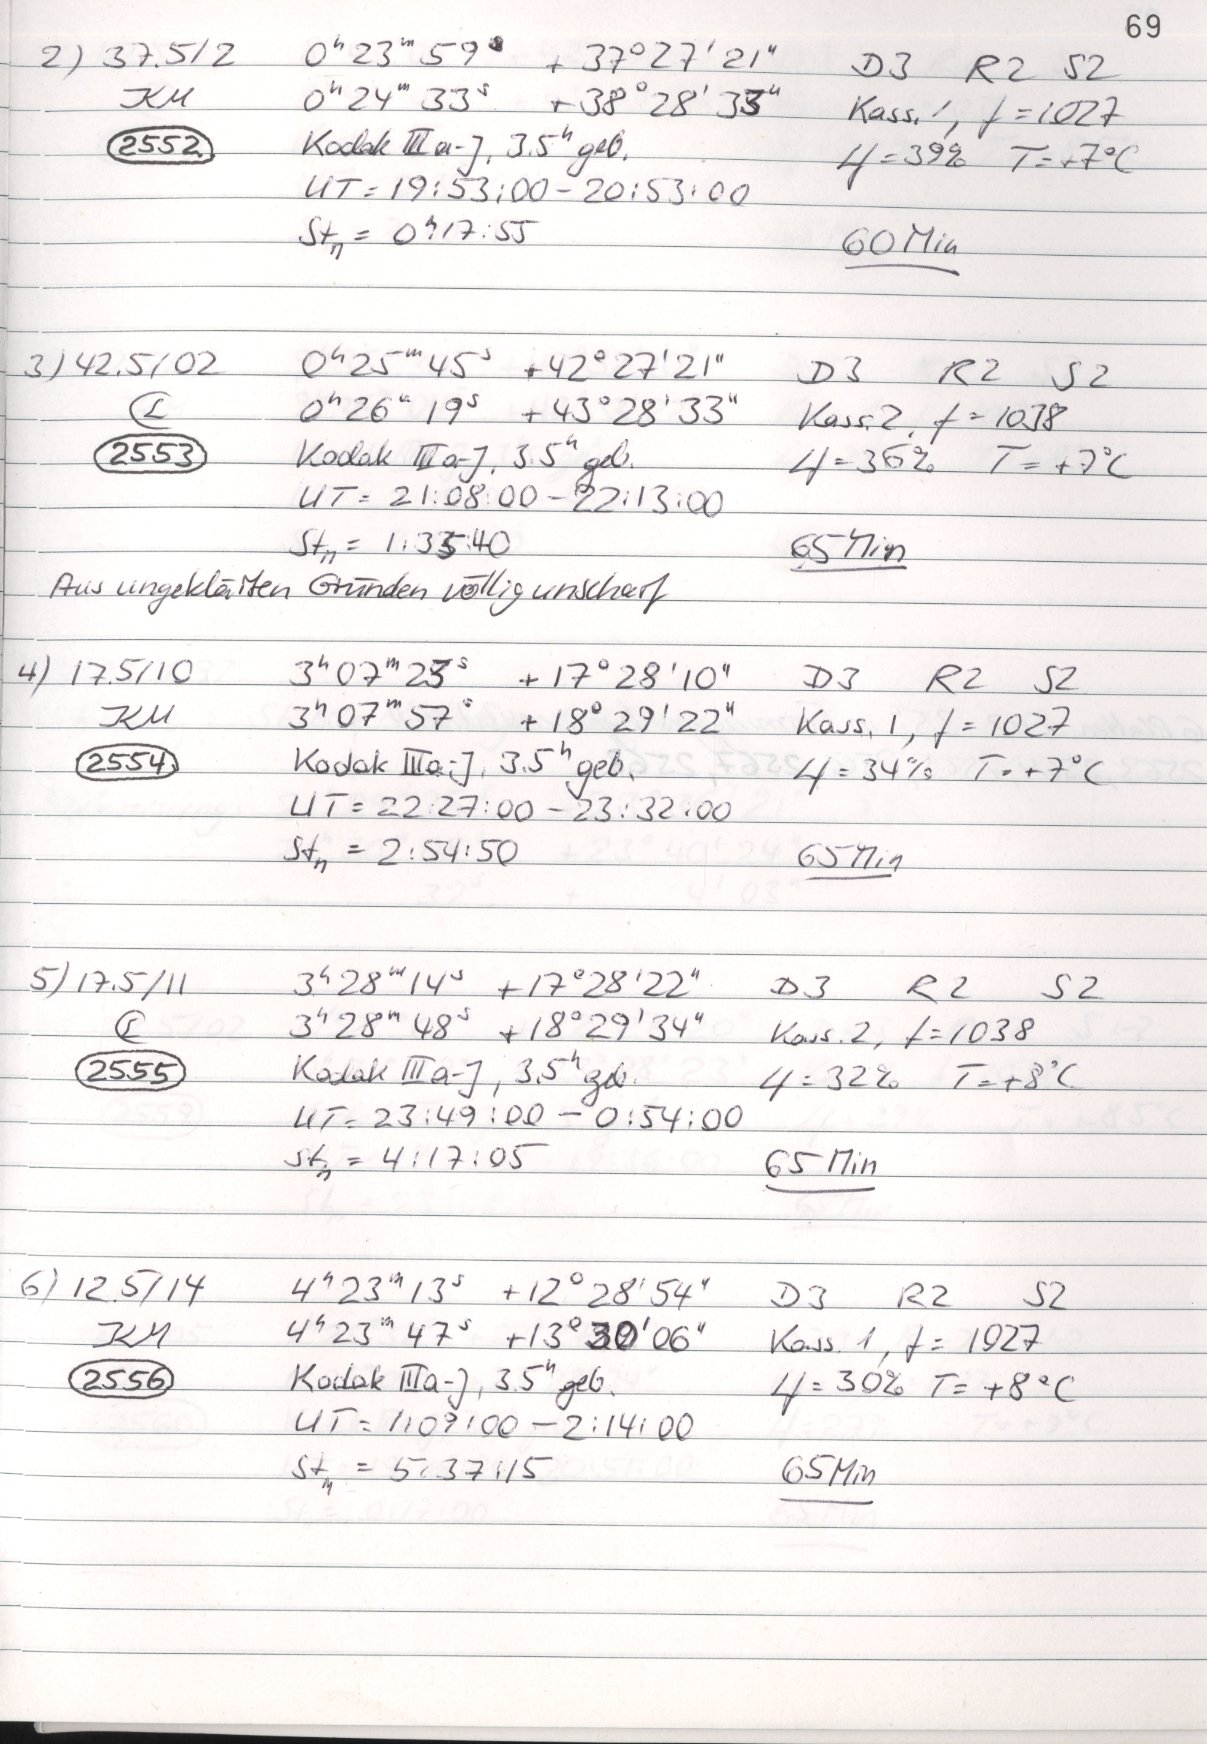 69
2) 37.5/2 0ʰ23ᵐ59ˢ +37°27'21" D3 R2 S2
KM 0ʰ24ᵐ33ˢ +38°28'33" Kass. 1, f=1027
2552 Kodak IIIa-J, 3.5ʰ geb. 4=39% T=+7°C
UT=19:53:00-20:53:00
Stₙ = 0ʰ17:55 60 Min
3) 42.5/02 0ʰ25ᵐ45ˢ +42°27'21" D3 R2 S2
0ʰ26ᵐ19ˢ +43°28'33" Kass. 2, f=1038
2553 Kodak IIIa-J, 3.5ʰ geb. 4=36% T=+7°C
UT=21:08:00-22:13:00
Stₙ = 1:35:40 65 Min
Aus ungeklärten Gründen völlig unscharf
4) 17.5/10 3ʰ07ᵐ23ˢ +17°28'10" D3 R2 S2
KM 3ʰ07ᵐ57ˢ +18°29'22" Kass. 1, f=1027
2554 Kodak IIIa-J, 3.5ʰ geb. 4=34% T=+7°C
UT=22:27:00-23:32:00
Stₙ = 2:54:50 65 Min
5) 17.5/11 3ʰ28ᵐ14ˢ +17°28'22" D3 R2 S2
3ʰ28ᵐ48ˢ +18°29'34" Kass. 2, f=1038
2555 Kodak IIIa-J, 3.5ʰ geb. 4=32% T=+8°C
UT=23:49:00-0:54:00
Stₙ = 4:17:05 65 Min
6) 12.5/14 4ʰ23ᵐ13ˢ +12°28'54" D3 R2 S2
KM 4ʰ23ᵐ47ˢ +13°30'06" Kass. 1, f=1027
2556 Kodak IIIa-J, 3.5ʰ geb. 4=30% T=+8°C
UT=1:09:00-2:14:00
Stₙ = 5:37:15 65 Min